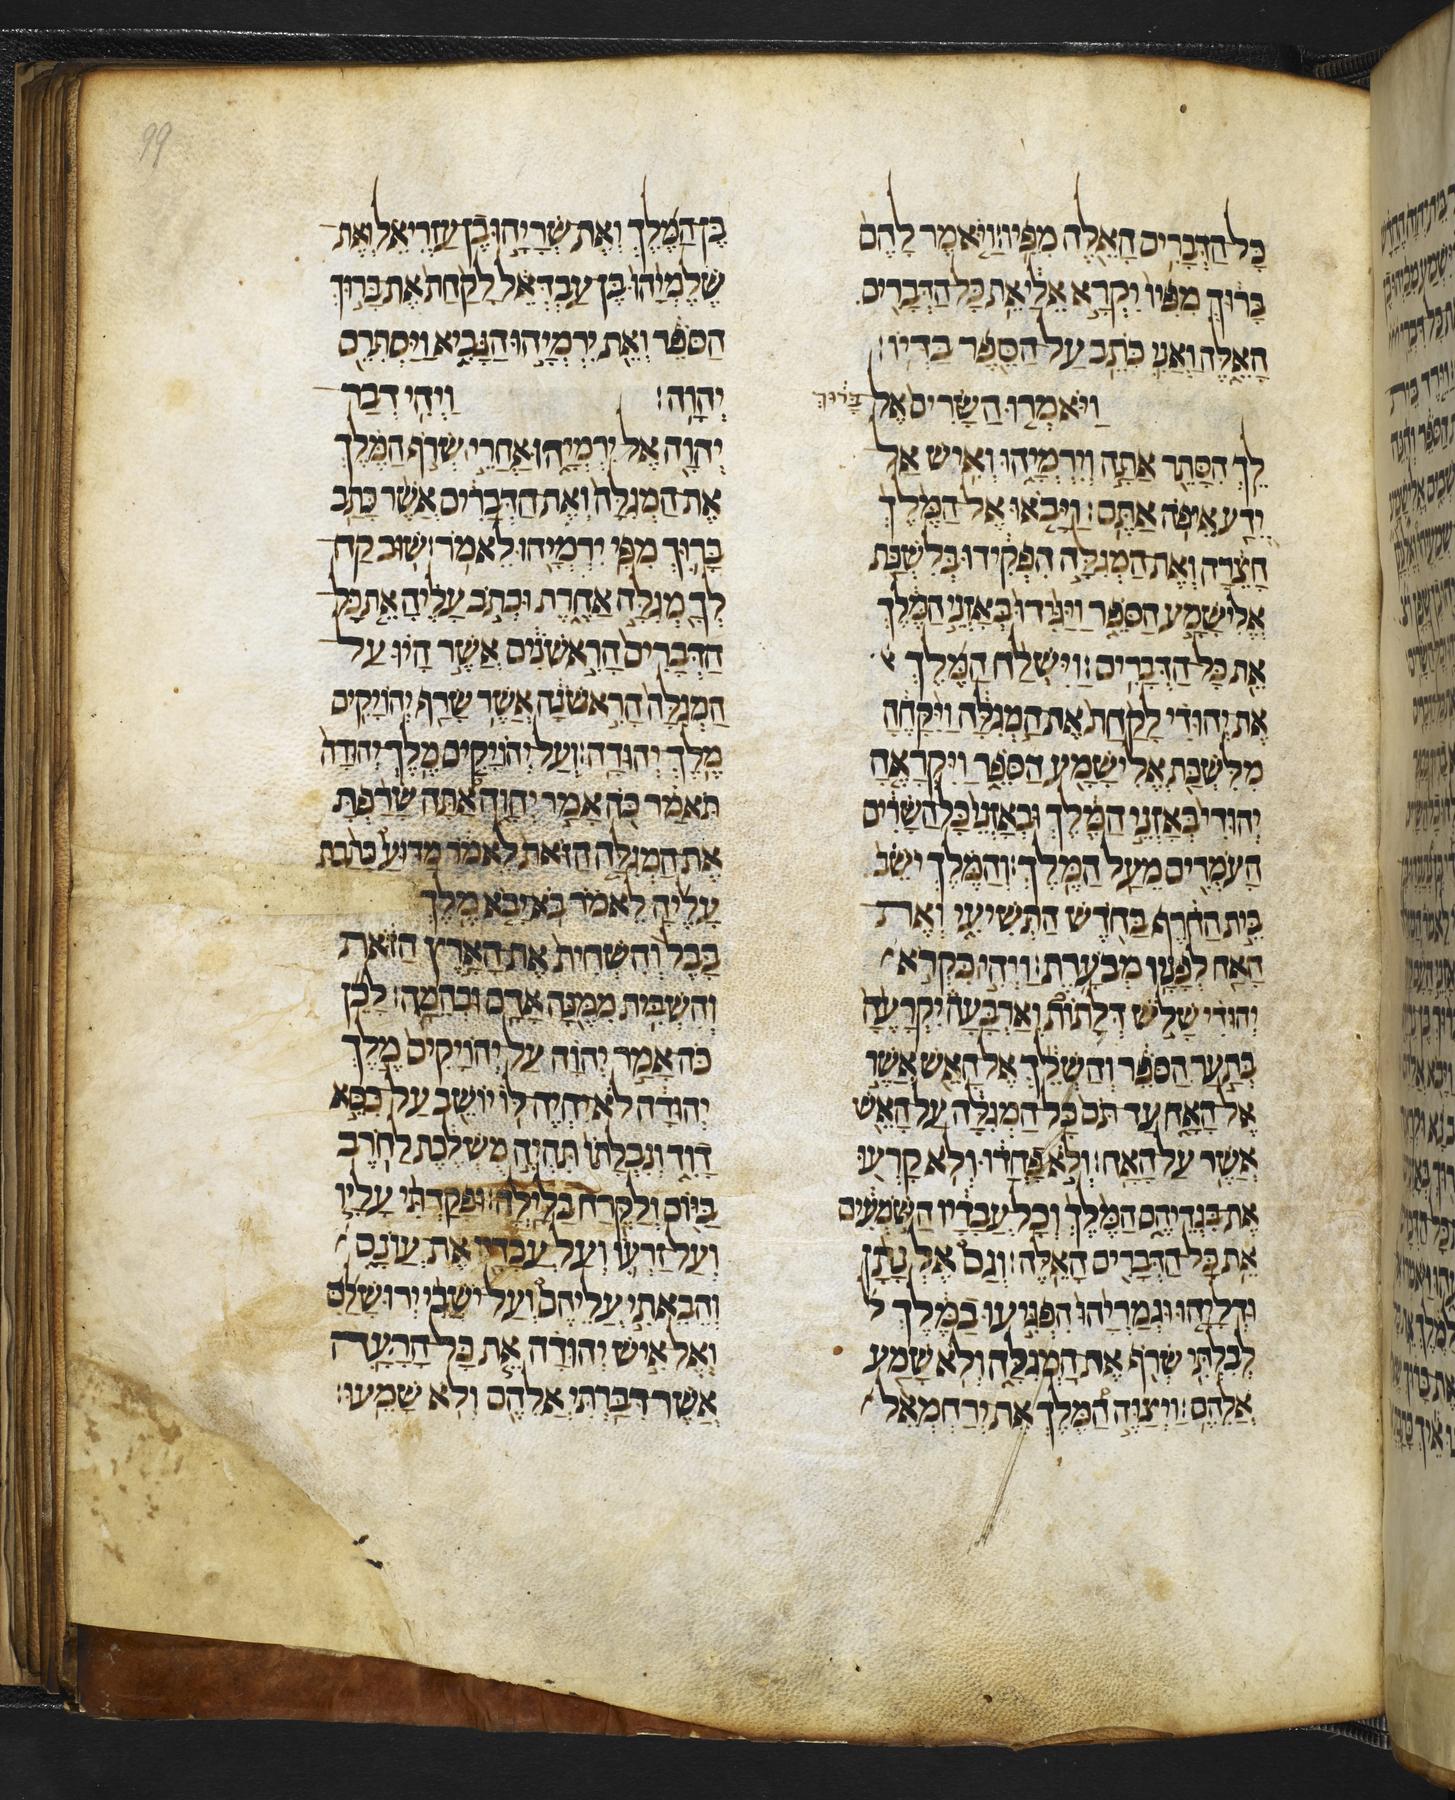 כָּל הַדְּבָרִים הָאֵלֶּה מִפִּיו׃ וַיֹּאמֶר לָהֶם
בָּרוּךְ מִפִּיו יִקְרָא אֵלַי אֵת כָּל הַדְּבָרִים
הָאֵלֶּה וַאֲנִי כֹּתֵב עַל הַסֵּפֶר בַּדְּיוֹ׃
וַיֹּאמְרוּ הַשָּׂרִים אֶל בָּרוּךְ
לֵךְ הִסָּתֵר אַתָּה וְיִרְמְיָהוּ וְאִישׁ אַל
יֵדַע אֵיפֹה אַתֶּם׃ וַיָּבֹאוּ אֶל הַמֶּלֶךְ
חָצֵרָה וְאֶת הַמְּגִלָּה הִפְקִידוּ בְּלִשְׁכַּת
אֱלִישָׁמָע הַסֹּפֵר וַיַּגִּידוּ בְּאָזְנֵי הַמֶּלֶךְ
אֵת כָּל הַדְּבָרִים׃ וַיִּשְׁלַח הַמֶּלֶךְ
אֶת יְהוּדִי לָקַחַת אֶת הַמְּגִלָּה וַיִּקָּחֶהָ
מִלִּשְׁכַּת אֱלִישָׁמָע הַסֹּפֵר וַיִּקְרָאֶהָ
יְהוּדִי בְּאָזְנֵי הַמֶּלֶךְ וּבְאָזְנֵי כָּל הַשָּׂרִים
הָעֹמְדִים מֵעַל הַמֶּלֶךְ׃ וְהַמֶּלֶךְ יֹשֵׁב
בֵּית הַחֹרֶף בַּחֹדֶשׁ הַתְּשִׁיעִי וְאֶת
הָאָח לְפָנָיו מְבֹעָרֶת׃ וַיְהִי כִּקְרֹא
יְהוּדִי שָׁלֹשׁ דְּלָתוֹת וְאַרְבָּעָה יִקְרָעֶהָ
בְּתַעַר הַסֹּפֵר וְהַשְׁלֵךְ אֶל הָאֵשׁ אֲשֶׁר
אֶל הָאָח עַד תֹּם כָּל הַמְּגִלָּה עַל הָאֵשׁ
אֲשֶׁר עַל הָאָח׃ וְלֹא פָחֲדוּ וְלֹא קָרְעוּ
אֶת בִּגְדֵיהֶם הַמֶּלֶךְ וְכָל עֲבָדָיו הַשֹּׁמְעִים
אֵת כָּל הַדְּבָרִים הָאֵלֶּה׃ וְגַם אֶלְנָתָן
וּדְלָיָהוּ וּגְמַרְיָהוּ הִפְגִּעוּ בַמֶּלֶךְ ל
לְבִלְתִּי שְׂרֹף אֶת הַמְּגִלָּה וְלֹא שָׁמַע
אֲלֵיהֶם׃ וַיְצַוֶּה הַמֶּלֶךְ אֶת יְרַחְמְאֵל
בֶּן הַמֶּלֶךְ וְאֶת שְׂרָיָהוּ בֶן עַזְרִיאֵל וְאֶת
שֶׁלֶמְיָהוּ בֶּן עַבְדְּאֵל לָקַחַת אֶת בָּרוּךְ
הַסֹּפֵר וְאֵת יִרְמְיָהוּ הַנָּבִיא וַיַּסְתִּרֵם
יְהוָה׃ וַיְהִי דְבַר
יְהוָה אֶל יִרְמְיָהוּ אַחֲרֵי שְׂרֹף הַמֶּלֶךְ
אֶת הַמְּגִלָּה וְאֶת הַדְּבָרִים אֲשֶׁר כָּתַב
בָּרוּךְ מִפִּי יִרְמְיָהוּ לֵאמֹר׃ שׁוּב קַח
לְךָ מְגִלָּה אַחֶרֶת וּכְתֹב עָלֶיהָ אֵת כָּל
הַדְּבָרִים הָרִאשֹׁנִים אֲשֶׁר הָיוּ עַל
הַמְּגִלָּה הָרִאשֹׁנָה אֲשֶׁר שָׂרַף יְהוֹיָקִים
מֶלֶךְ יְהוּדָה׃ וְעַל יְהוֹיָקִים מֶלֶךְ יְהוּדָה
תֹּאמַר כֹּה אָמַר יְהוָה אַתָּה שָׂרַפְתָּ
אֶת הַמְּגִלָּה הַזֹּאת לֵאמֹר מַדּוּעַ כָּתַבְתָּ
עָלֶיהָ לֵאמֹר בֹּא יָבֹא מֶלֶךְ
בָּבֶל וְהִשְׁחִית אֶת הָאָרֶץ הַזֹּאת
וְהִשְׁבִּית מִמֶּנָּה אָדָם וּבְהֵמָה׃ לָכֵן
כֹּה אָמַר יְהוָה עַל יְהוֹיָקִים מֶלֶךְ
יְהוּדָה לֹא יִהְיֶה לּוֹ יוֹשֵׁב עַל כִּסֵּא
דָוִד וְנִבְלָתוֹ תִּהְיֶה מֻשְׁלֶכֶת לַחֹרֶב
בַּיּוֹם וְלַקֶּרַח בַּלָּיְלָה׃ וּפָקַדְתִּי עָלָיו
וְעַל זַרְעוֹ וְעַל עֲבָדָיו אֶת עֲוֹנָם
וְהֵבֵאתִי עֲלֵיהֶם וְעַל יֹשְׁבֵי יְרוּשָׁלִַם
וְאֶל אִישׁ יְהוּדָה אֵת כָּל הָרָעָה
אֲשֶׁר דִּבַּרְתִּי אֲלֵיהֶם וְלֹא שָׁמֵעוּ׃
99